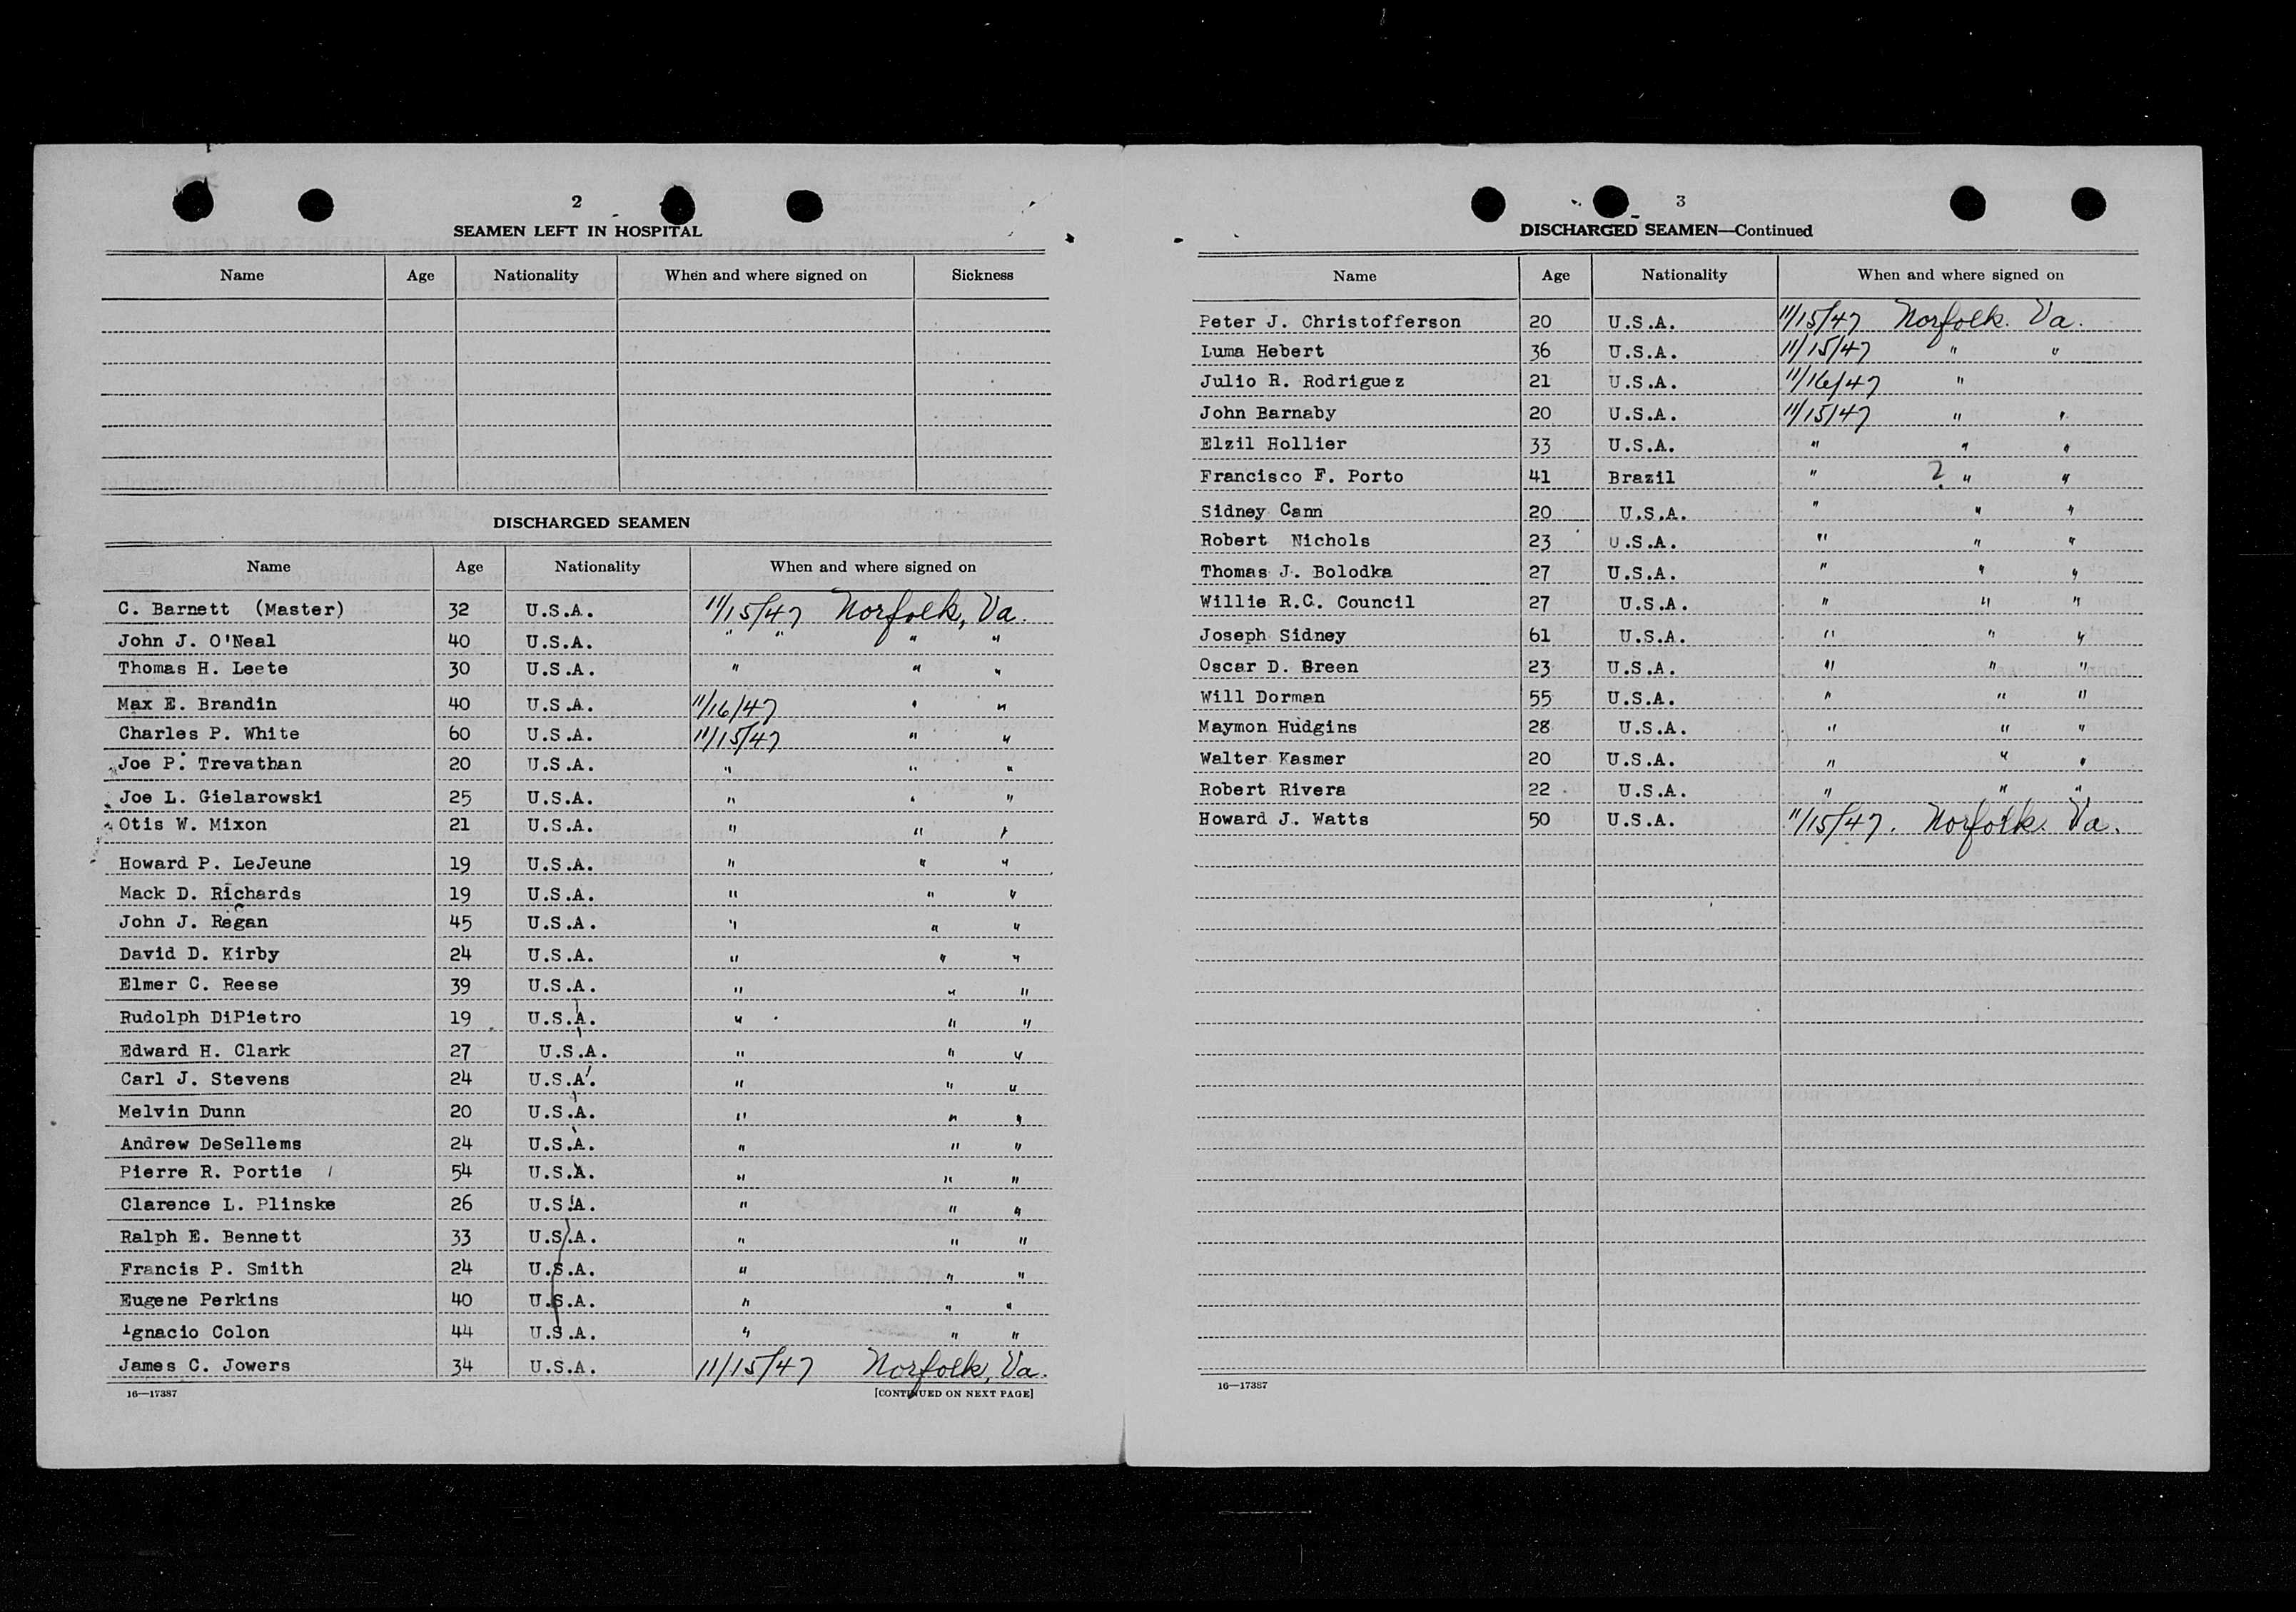 2
SEAMEN LEFT IN HOSPITAL
Name Age Nationality When and where signed on Sickness
DISCHARGED SEAMEN
Name Age Nationality When and where signed on
C. Barnett (Master) 32 U.S.A. 11/15/47 Norfolk, Va.
John J. O'Neal 40 U.S.A. " " " "
Thomas H. Leete 30 U.S.A. " " "
Max E. Brandin 40 U.S.A. 11/16/47 " "
Charles P. White 60 U.S.A. 11/15/47 " "
Joe P. Trevathan 20 U.S.A. " " "
Joe L. Gielarowski 25 U.S.A. " " "
Otis W. Mixon 21 U.S.A. " " "
Howard P. LeJeune 19 U.S.A. " " "
Mack D. Richards 19 U.S.A. " " "
John J. Regan 45 U.S.A. " " "
David D. Kirby 24 U.S.A. " " "
Elmer C. Reese 39 U.S.A. " " "
Rudolph DiPietro 19 U.S.A. " " "
Edward H. Clark 27 U.S.A. " " "
Carl J. Stevens 24 U.S.A. " " "
Melvin Dunn 20 U.S.A. " " "
Andrew DeSellems 24 U.S.A. " " "
Pierre R. Portie 54 U.S.A. " " "
Clarence L. Plinske 26 U.S.A. " " "
Ralph E. Bennett 33 U.S.A. " " "
Francis P. Smith 24 U.S.A. " " "
Eugene Perkins 40 U.S.A. " " "
Ignacio Colon 44 U.S.A. " " "
James C. Jowers 34 U.S.A. 11/15/47 Norfolk, Va.
16—17387 [CONTINUED ON NEXT PAGE]
3
DISCHARGED SEAMEN—Continued
Name Age Nationality When and where signed on
Peter J. Christofferson 20 U.S.A. 11/15/47 Norfolk. Va.
Luma Hebert 36 U.S.A. 11/15/47 " "
Julio R. Rodriguez 21 U.S.A. 11/16/47 "
John Barnaby 20 U.S.A. 11/15/47 " "
Elzil Hollier 33 U.S.A. " " "
Francisco F. Porto 41 Brazil " ? " "
Sidney Cann 20 U.S.A. " " "
Robert Nichols 23 U.S.A. " " "
Thomas J. Bolodka 27 U.S.A. " " "
Willie R.C. Council 27 U.S.A. " " "
Joseph Sidney 61 U.S.A. " " "
Oscar D. Breen 23 U.S.A. " " "
Will Dorman 55 U.S.A. " " "
Maymon Hudgins 28 U.S.A. " " "
Walter Kasmer 20 U.S.A. " " "
Robert Rivera 22 U.S.A. " " "
Howard J. Watts 50 U.S.A. 11/15/47. Norfolk. Va.
16—17387